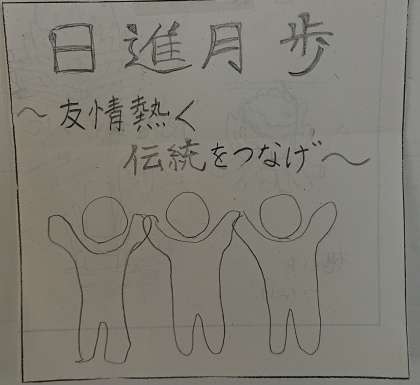 日進月歩
～友情熱く
伝統をつなげ～